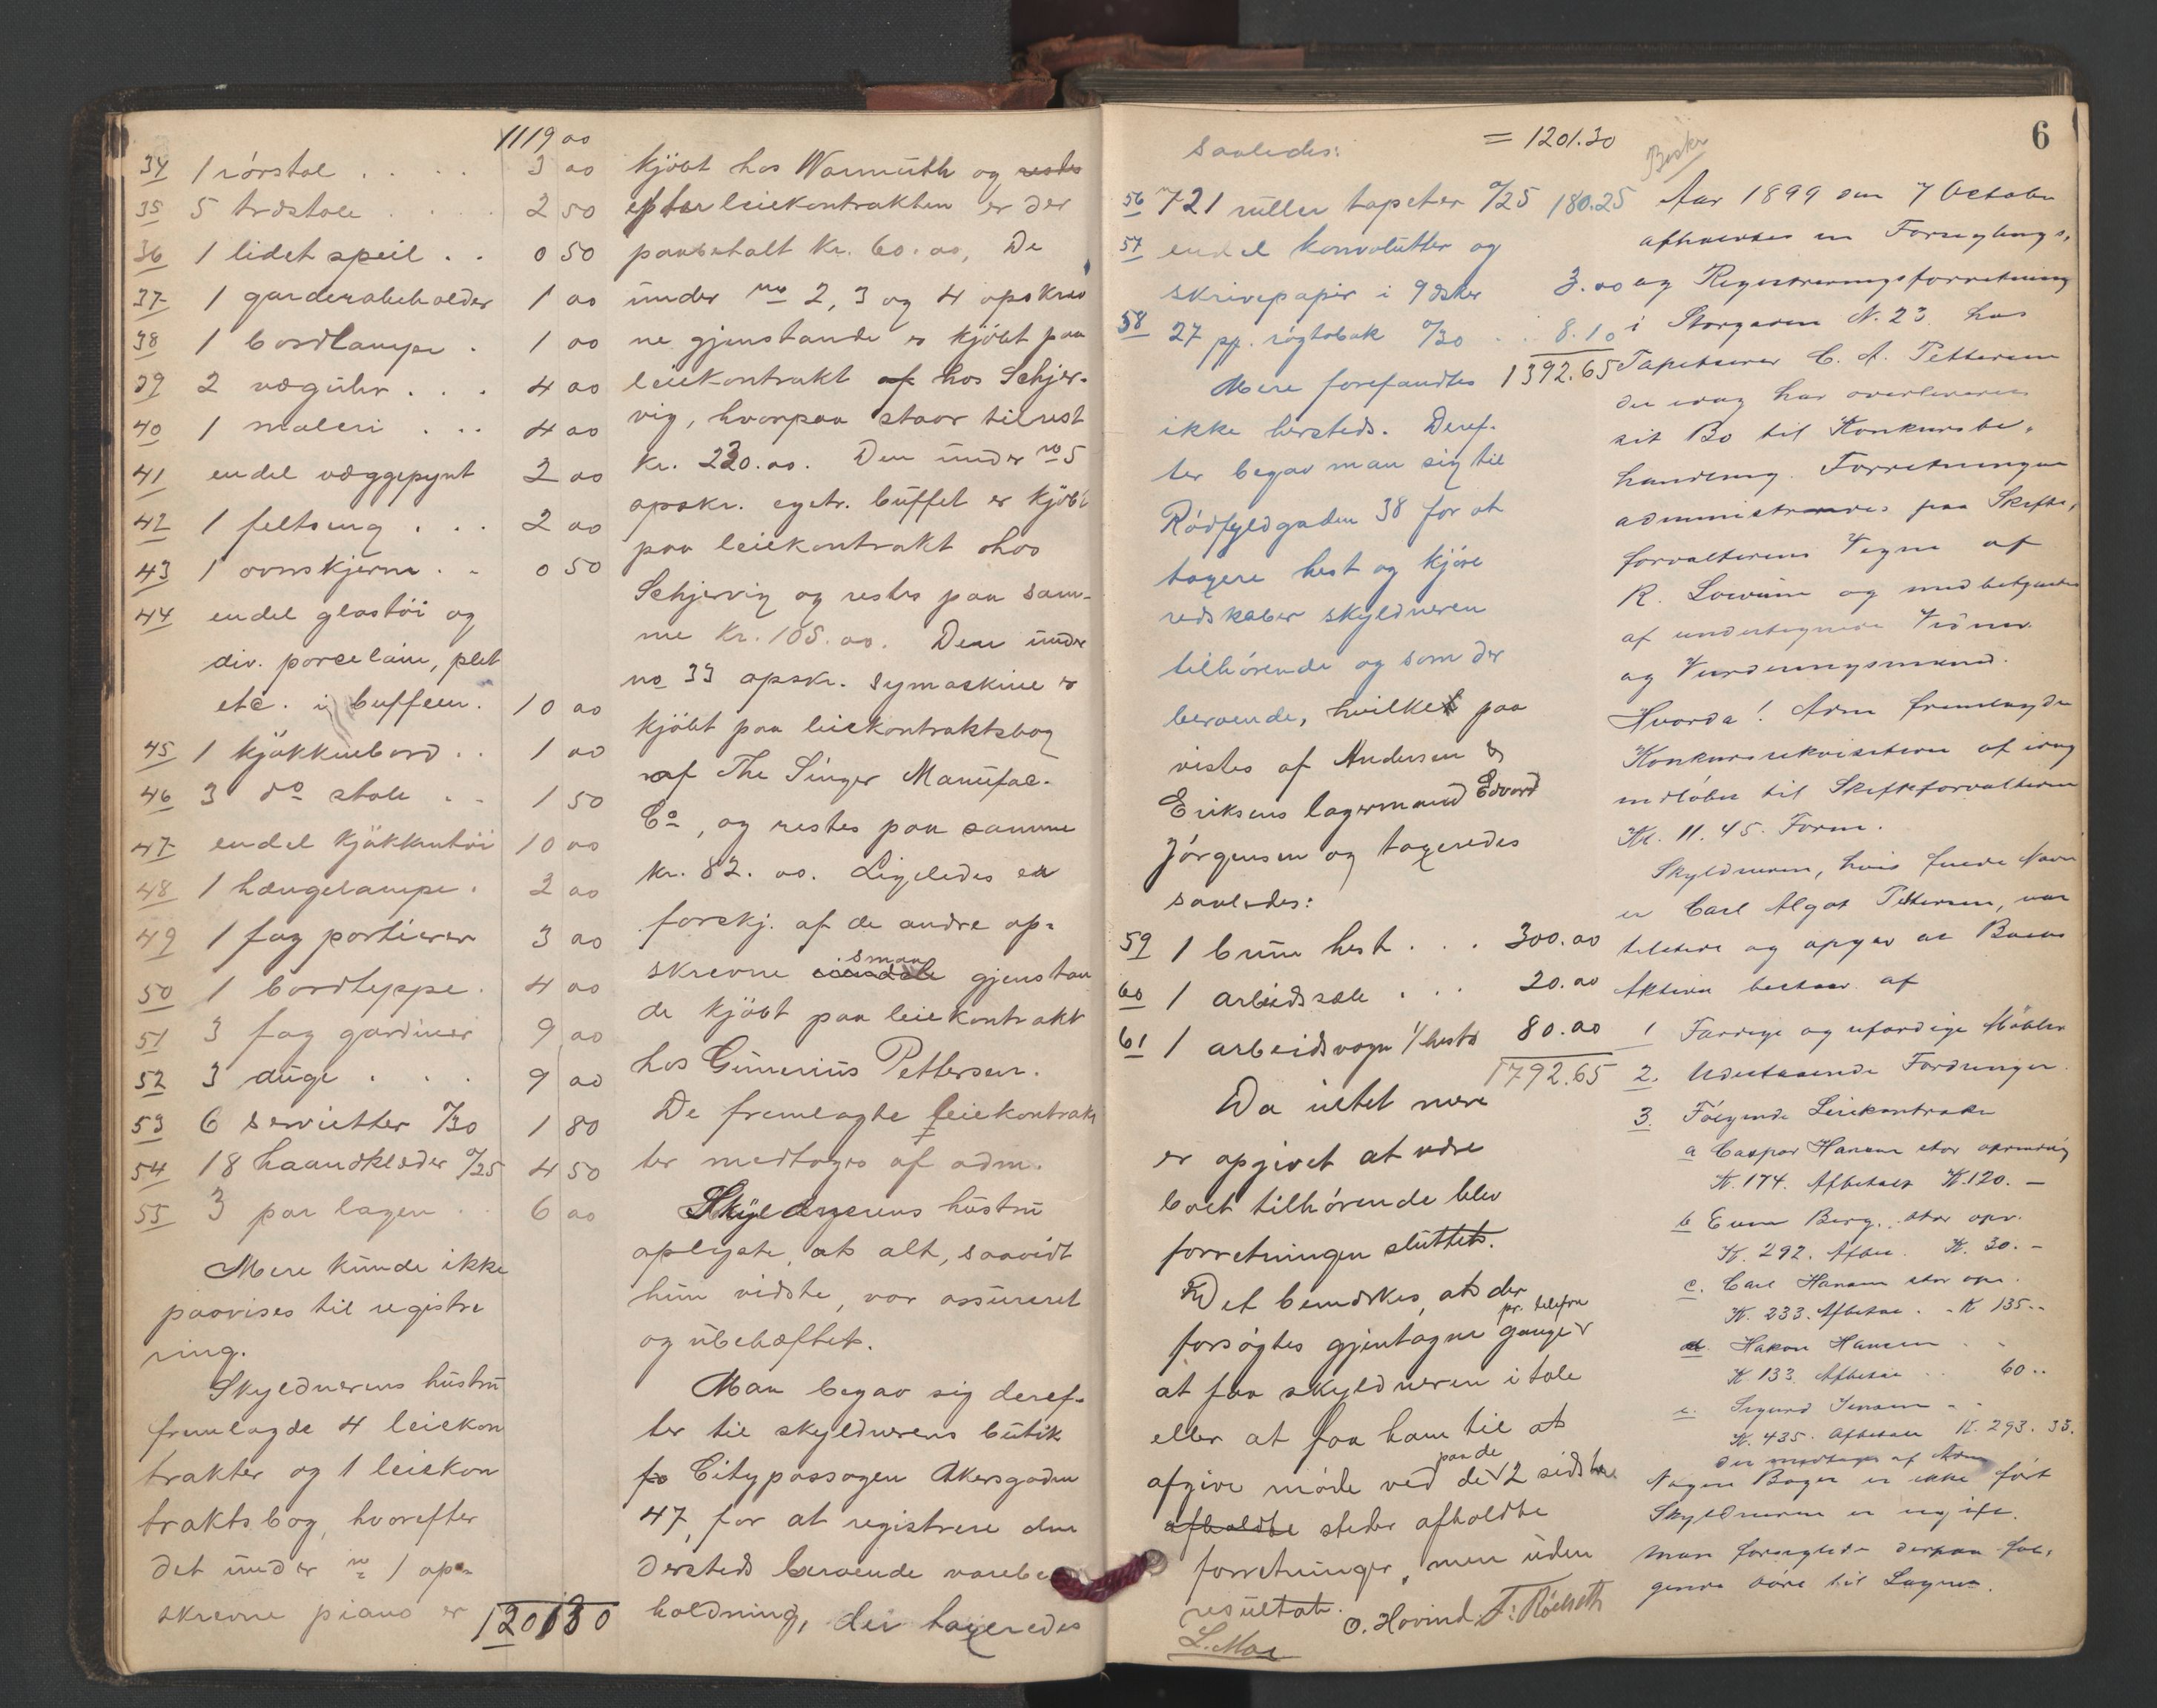 1119 00
34 1 rørstol . . . . 3 00
35 5 træstole . . . 2 50
36 1 lidet speil . . 0 50
37 1 garderobeholder 1 00
38 1 bordlampe . 1 00
39 2 væguhr . . . 4 00
40 1 maleri . . . 4 00
41 endel væggepynt 2 00
42 1 feltseng . . . 2 00
43 1 ovnskjerm . . 0 50
44 endel glastøi og
div. porcelain, plet
etc. i buffeen. 10 00
45 1 kjøkkenbord . . 1 00
46 3 do stole . . 1 50
47 endel kjøkkentøi 10 00
48 1 hængelampe . 2 00
49 1 fag portierer 3 00
50 1 bordteppe . 4 00
51 3 fag gardiner 9 00
52 3 duge . . . 9 00
53 6 servietter %30 1 80
54 18 haandklæder %25 4 50
55 3 par lagen . . 6 00
Mere kunde ikke
paavises til registre
ring.
Skyldnerens hustru
fremlagde 4 leiekon
trakter og 1 leiekon
traktsbog, hvorefter
det under no 1 op-
skrevne piano er
120130
kjøbt hos Warmuth og restes
efter leiekontrakten er der
paabetalt kr. 60.00, De
under no 2, 3 og 4 opskrev
ne gjenstande er kjøbt paa
leiekontrakt af hos Schjer-
vig, hvorpaa staar tilrest
kr. 220.00. Den under no 5
opskr. egetr. buffet er kjøbt
paa leiekontrakt hos
Schjervig og restes paa sam-
me kr. 105.00. Den under
no 33 opskr. symaskine er
kjøbt paa leiekontraktsbog
af The Singer Manufac.
Co, og restes paa samme
kr. 82.00. Ligeledes er
forskj. af de andre op-
skrevne smaa gjenstan
de kjøbt paa leiekontrakt
hos Gunerius Pettersen.
De fremlagte leiekontrak
ter medtoges af adm.
Skyldnerens hustru
oplyste, at alt, saavidt
hun vidste, var assureret
og ubehæftet.
Man begav sig deref-
ter til skyldnerens butik
fo Citypassagen Akersgaden
47, for at registrere den
dersteds beroende varebe
holdning, der taxeredes
6
saaledes: = 1201.30
56 721 ruller tapeter %25 180.25
57 endel konvolutter og
skrivepapir i 9 æsker 3.00
58 27 pp. røgtobak %30 . . 8.10
Mere forefandtes 1392.65
ikke hersteds. Deref-
ter begav man sig til
Rødfyldgaden 38 for at
taxere hest og kjøre
redskaber skyldneren
tilhørende og som der
beroende, hvilket paa
vistes af Andersen &
Eriksens lagermand Edvard
Jørgensen og taxeredes
saaledes:
59 1 brun hest . . . 300.00
60 1 arbeidssele . . . 20.00
61 1 arbeidsvogn 1/hests 80.00
1792.65
Da intet mere
er opgivet at være
boet tilhørende blev
forretningen sluttet.
Det bemærkes, at der
pr. telefon
forsøgtes gjentagne gange
at faa skyldneren i tale
eller at faa ham til at
paa de
afgive møde ved de 2 sidste
afholdte steder afholdte
forretninger, men uden
resultat. O. Hovind. F. Röelseth
L. Moe
Beskr
Aar 1899 den 7 October
afholdtes en Forseglings,
og Registreringsforretning
i Storgaden N. 23 hos
Tapetserer C. A. Pettersen
der idag har overleveret
sit Bo til Konkursbe,
handling. Forretningen
administreredes paa Skifte,
forvalterens Vegne af
R. og med betjentes
af undertegnede Vidner
og Vurderingsmænd.
Hvorda! Adm fremlagde
Konkursrekvisition af idag
indløbet til Skifteforvalteren
Kl. 11.45 Form.
Skyldneren, hvis fulde Navn
er Carl Algot Pettersen, var
tilstede og opgav at Boets
Aktiva bestaar af
1 Færdige og ufærdige Møbler
2. Udestaaende Fordringer.
3. Følgende Leiekontrakter
a Caspar Hansen stor oprindelig
K. 174. Afbetalt K. 120. –
b Even Berg, stor opr.
K. 292. Afbet. K. 30. –
c. Carl Hansen stor opr.
K. 233. Afbetalt . . K 135 . .
d. Hakon Hansen . .
K 133. Afbetalt . . 60 . .
e. Sigurd Jensen . .
K. 435. Afbetalt K. 293. 35.
der medtages af Adm
Nogen Bøger er ikke ført
Skyldneren er ugift.
Man forseglede derpaa føl,
gende Døre til Lageret.